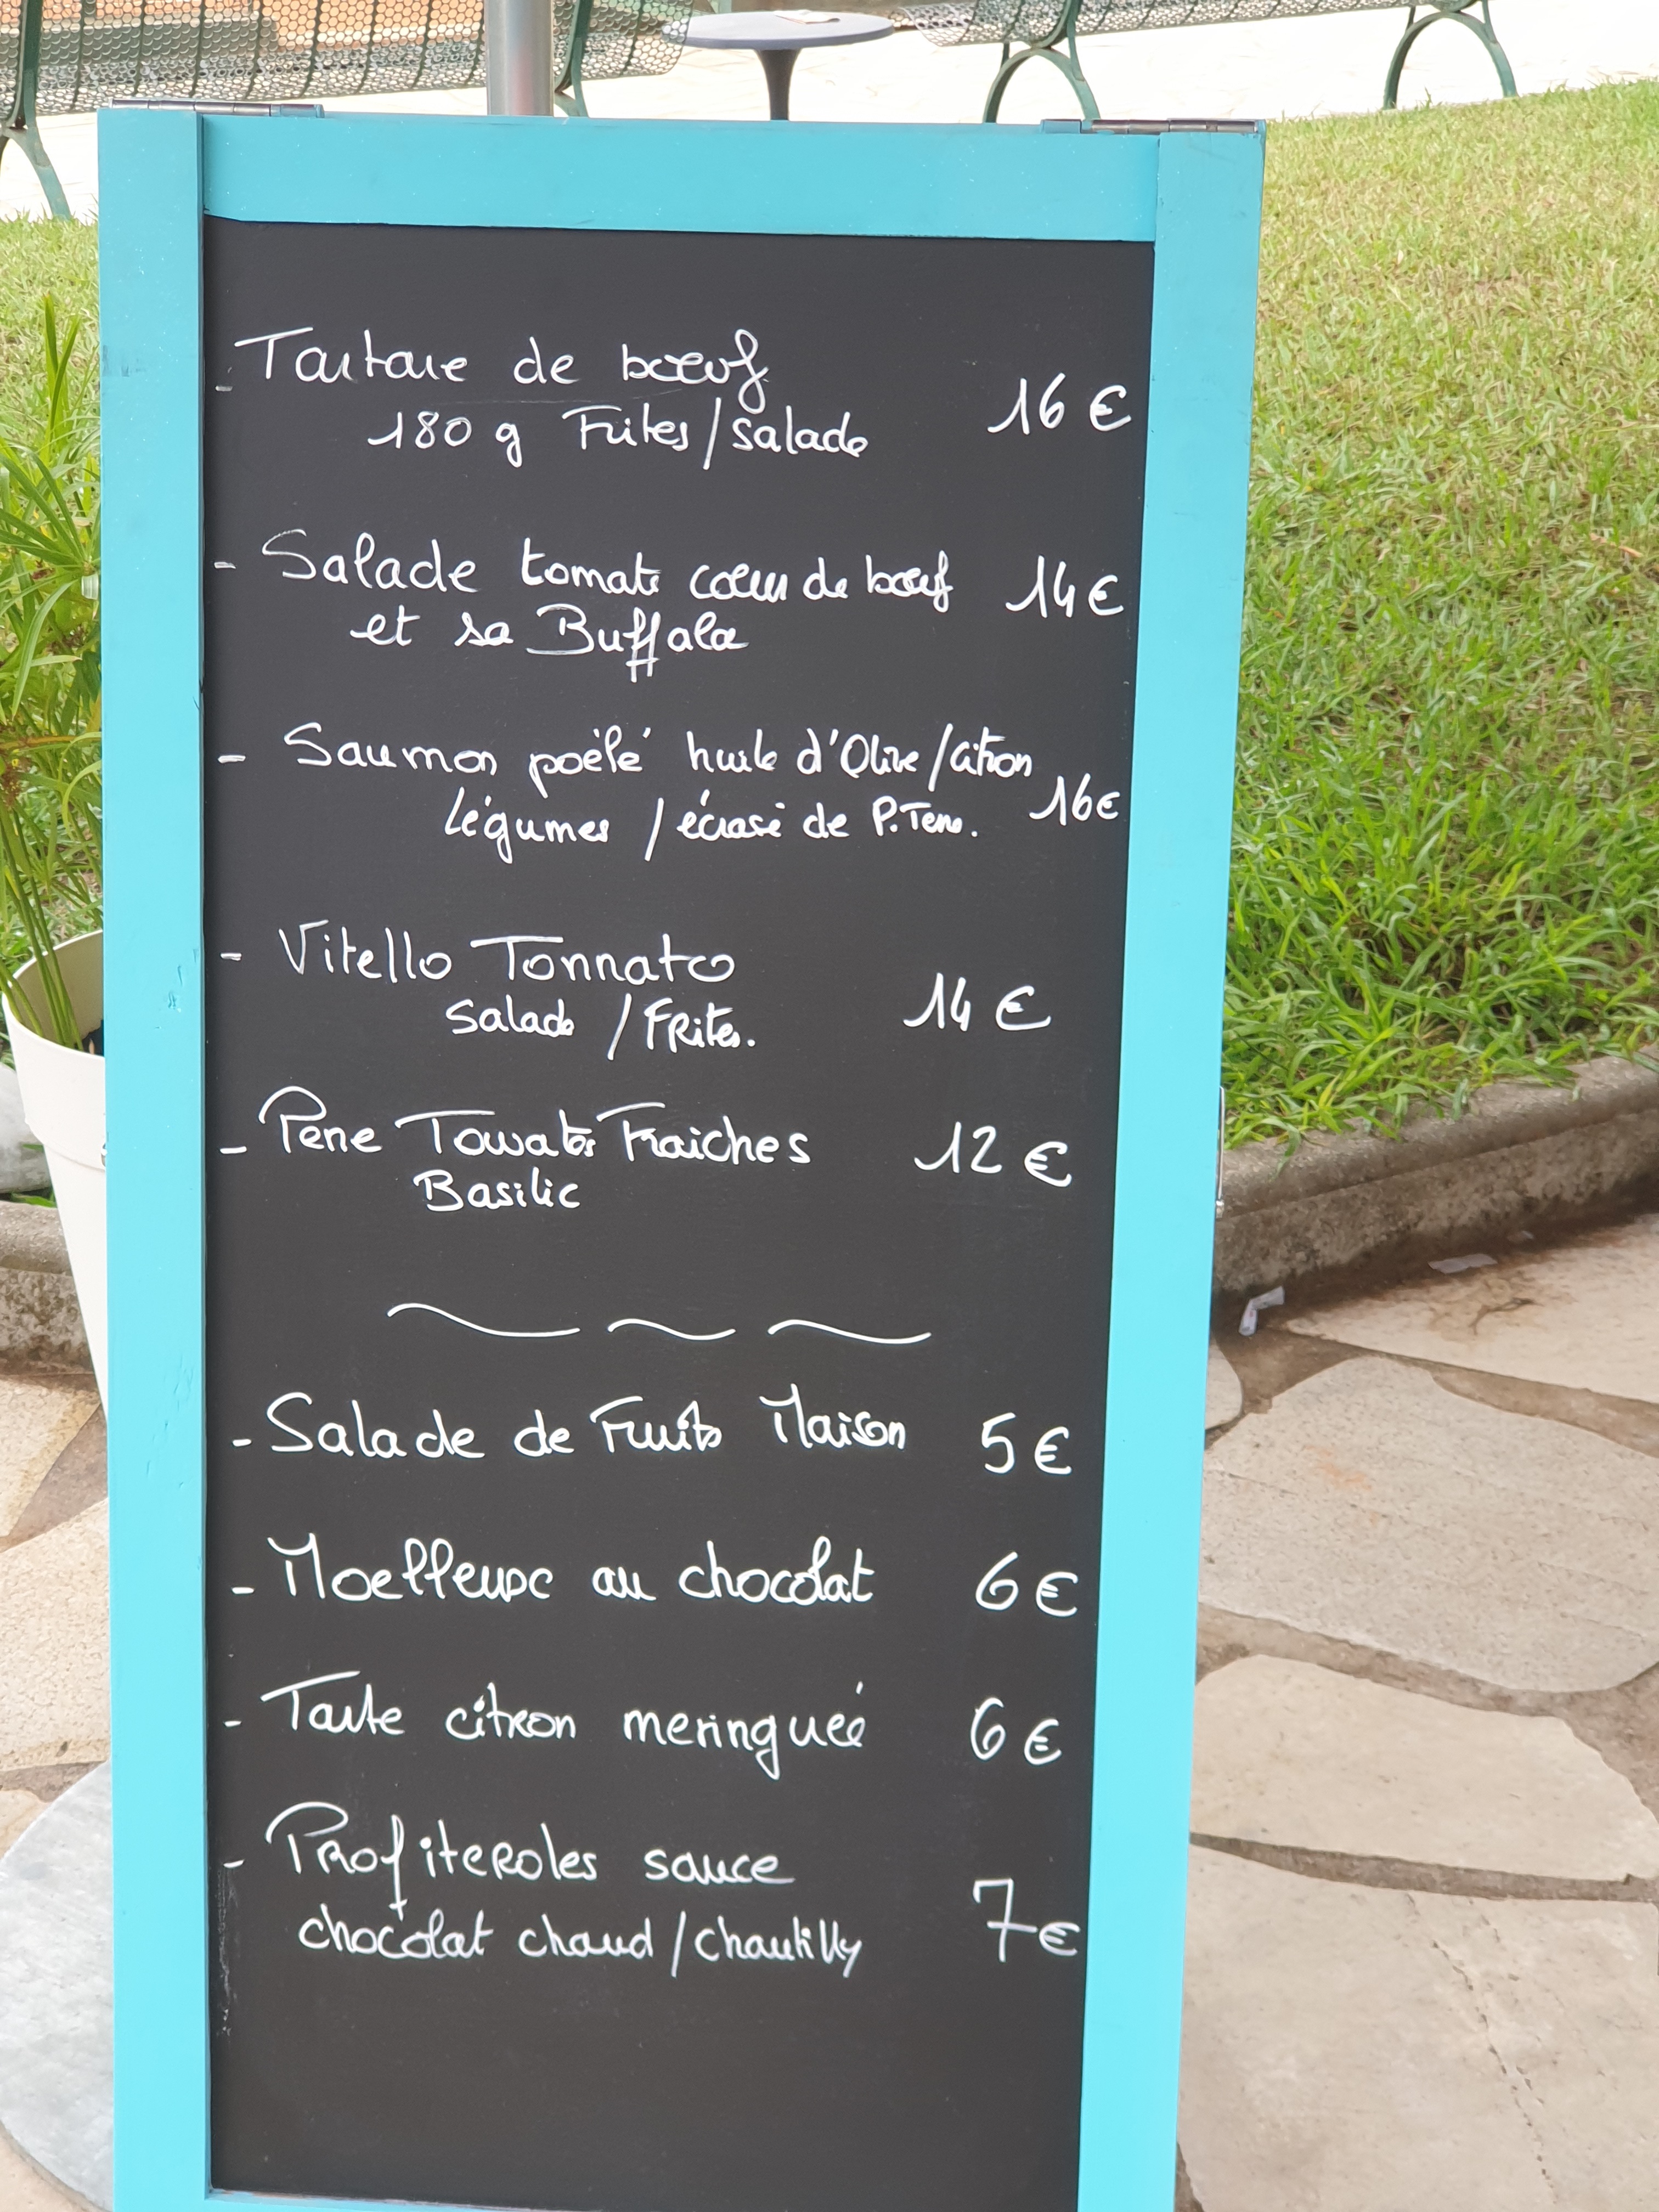 - Tartare de bœuf
180 g Frites/salade 16 €
- Salade tomate cœur de bœuf 14 €
et sa Buffala
- Saumon poêlé huile d'Olive/citron
légumes / écrasé de P.Terre. 16 €
- Vitello Tonnato
Salade / FRites. 14 €
- Pene Tomates Fraiches 12 €
Basilic
- Salade de Fruits Maison 5 €
- Moelleuse au chocolat 6 €
- Tarte citron meringuée 6 €
- Profiteroles sauce
chocolat chaud / chantilly 7 €